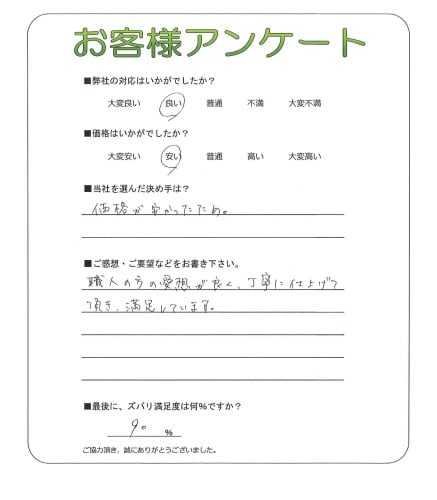 お客様アンケート
■弊社の対応はいかがでしたか？
大変良い 良い 普通 不満 大変不満
■価格はいかがでしたか？
大変安い 安い 普通 高い 大変高い
■当社を選んだ決め手は？
価格が安かったため。
■ご感想・ご要望などをお書き下さい。
職人の方の愛想が良く、丁寧に仕上げて
頂き、満足しています。
■最後に、ズバリ満足度は何%ですか？
90 %
ご協力頂き、誠にありがとうございました。